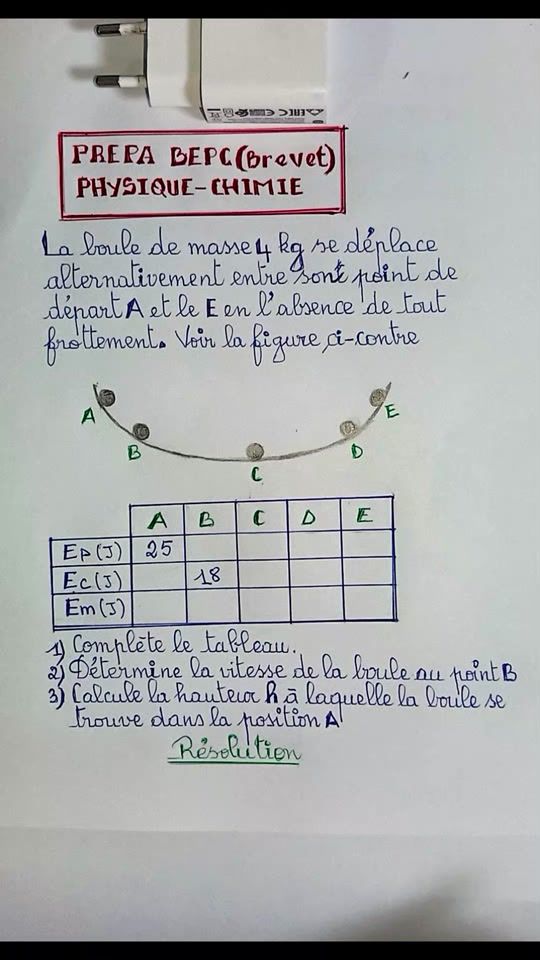 PREPA BEPC(Brevet)
PHYSIQUE-CHIMIE
La boule de masse 4 kg se déplace
alternativement entre sont point de
départ A et le E en l'absence de tout
frottement. Voir la figure ci-contre
A B C D E
A B C D E
Ep(J) 25
Ec(J) 18
Em(J)
1) Complète le tableau.
2) Détermine la vitesse de la boule au point B
3) Calcule la hauteur h à laquelle la boule se
trouve dans la position A
Résolution